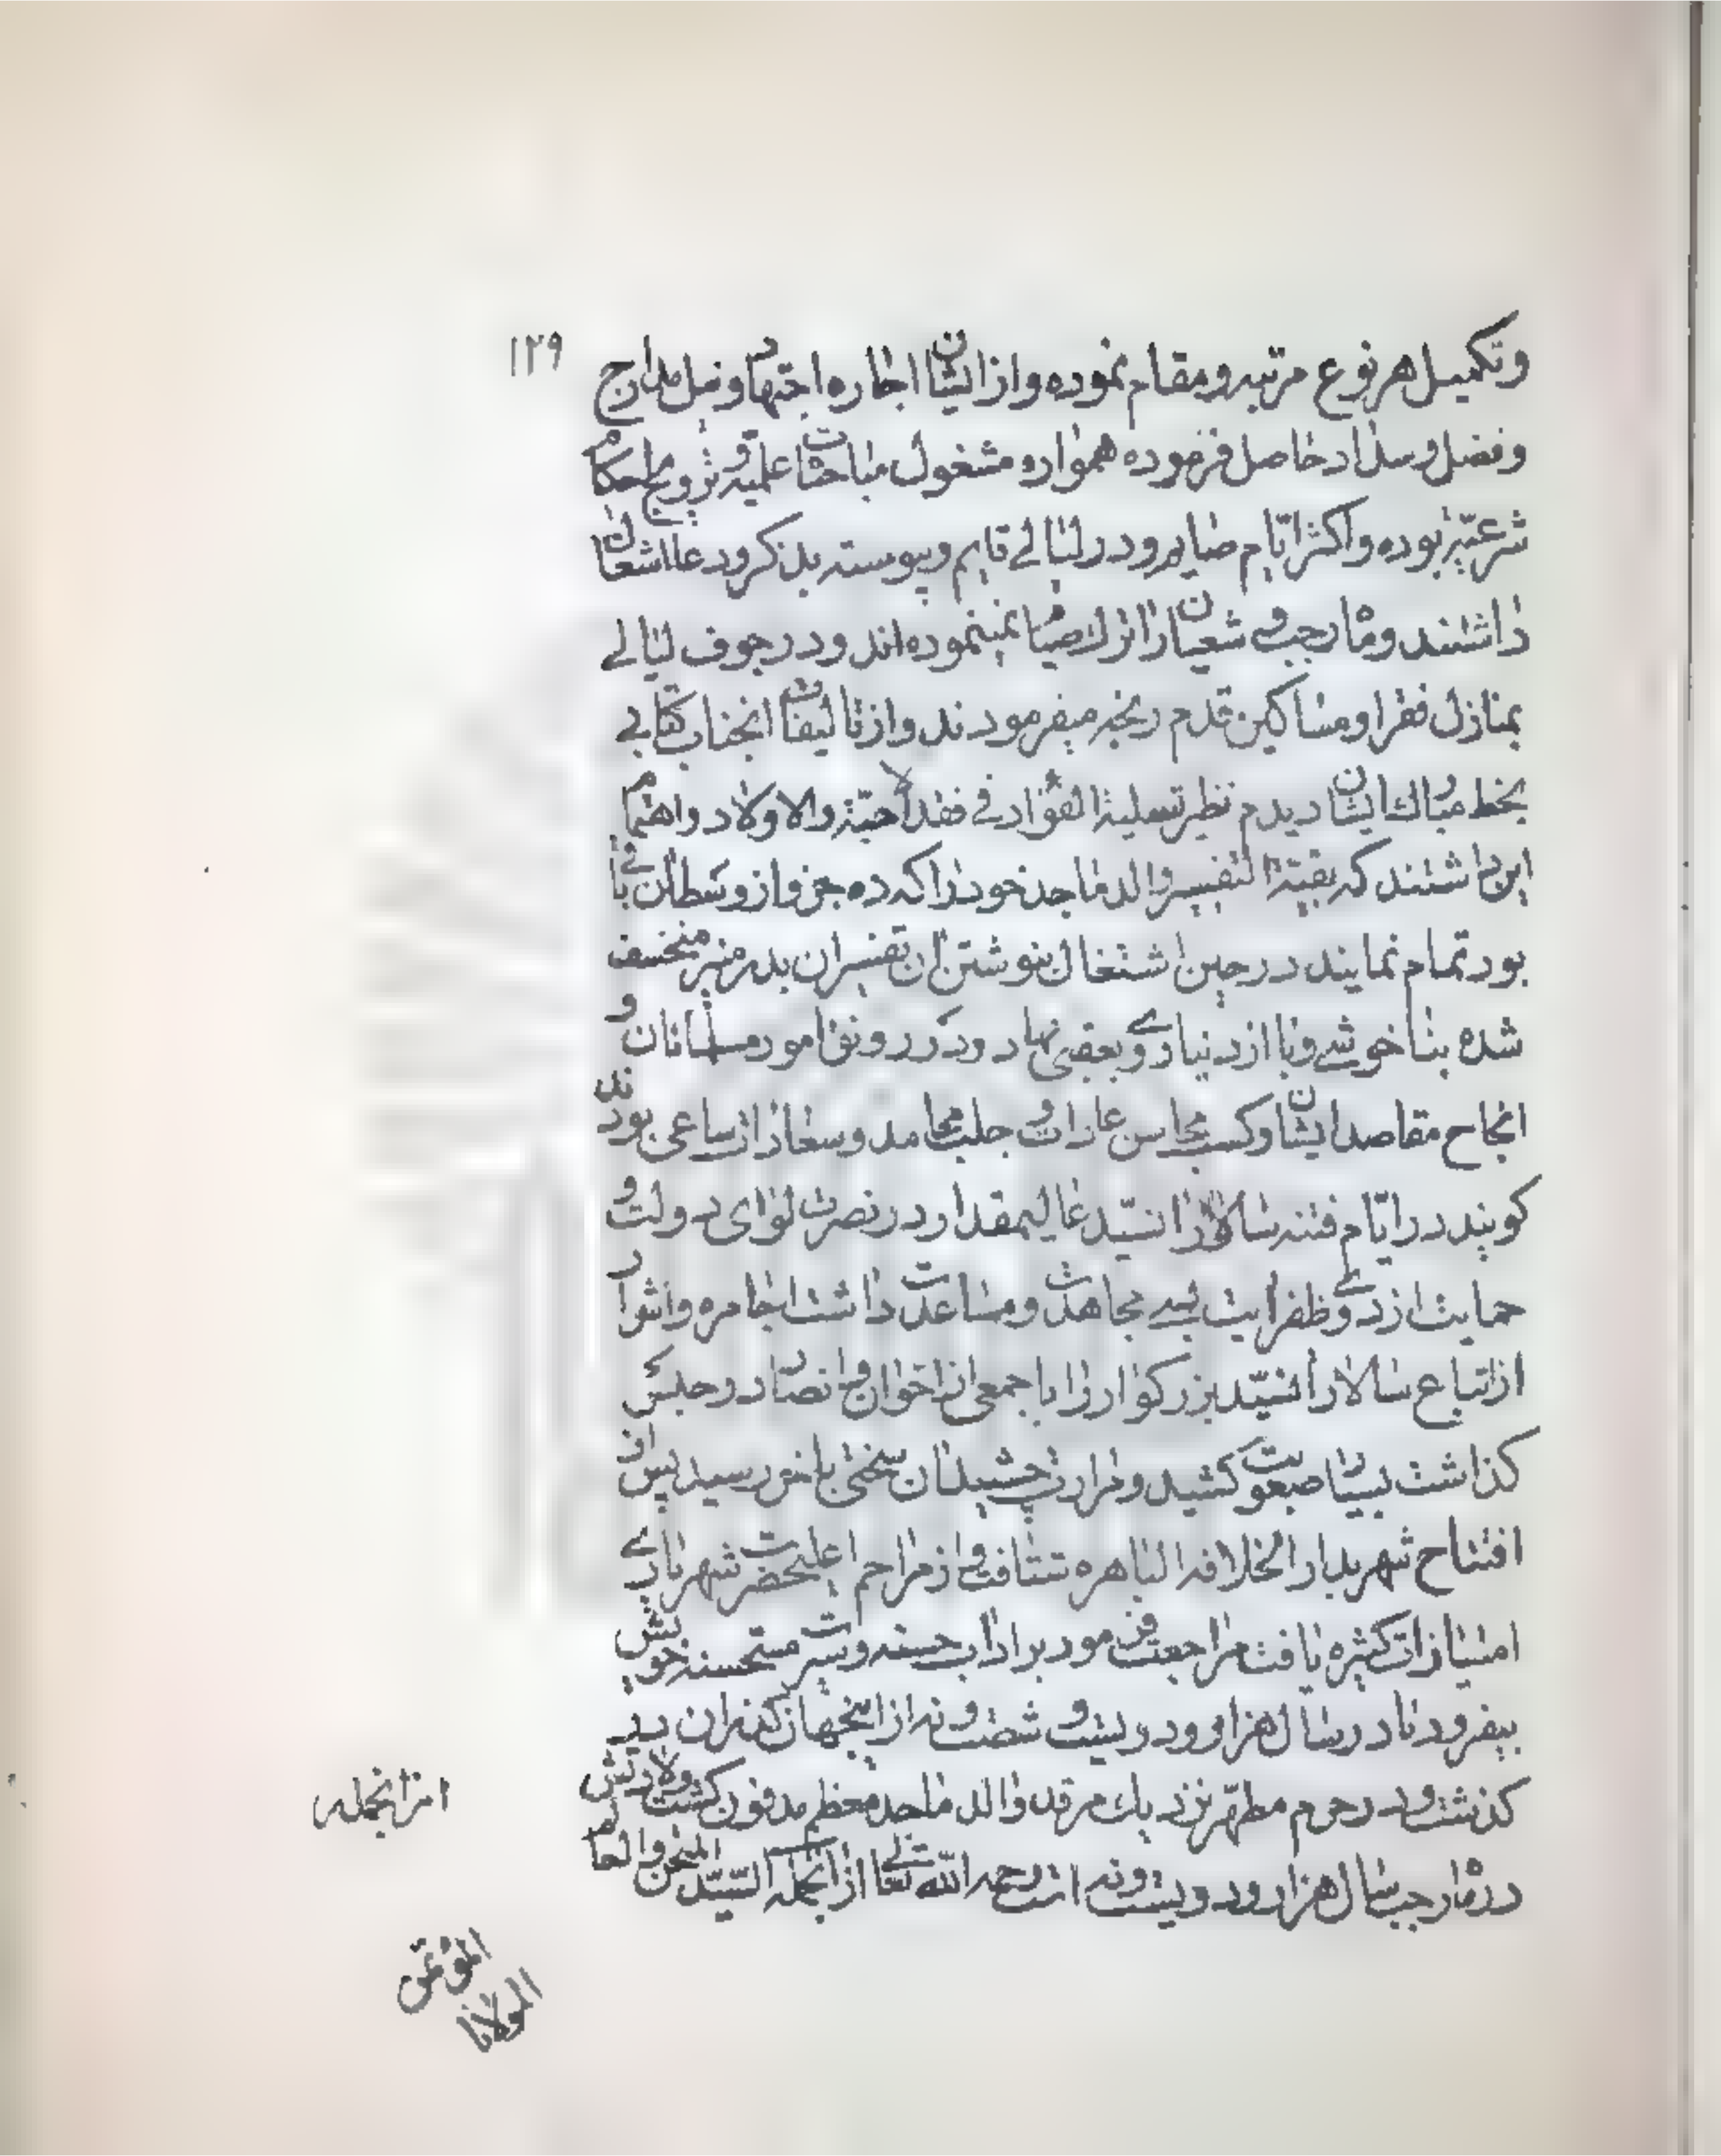 ۱۲۹
وتکمیل هر نوع مرتبه ومقام نموده واز ایشان اجازه اجتهاد ونیل مدارج
وفضل وسداد حاصل فرموده همواره مشغول مباحثات علمیّه وترویج احکام
شرعیّه بوده واکثر ایّام صایم ودر لیالے قایم وپیوسته بذکر ودعا اشتغال
داشتند وماه رجب وشعبان را ترک صیام نمینموده اند ودر جوف لیالے
بمنازل فقرا ومساکین قدم رنجه میفرمودند واز تالیفات انجناب کتابے
بخط مبارک ایشان دیدم نظیر تسلیة الفؤاد فے فقد الاحبّة والاولاد واهتمام
این داشتند که بقیّة التفسیر والد ماجد خود را که ده جزو از وسط ان باقے
بود تمام نمایند در حین اشتغال بنوشتن ان تفسیر ان بدر منیر منخسف
شده بناخوشے وبا از دنیا دے وبعقبی نهاد ودر رونق امور مسلمانان و
انجاح مقاصد ایشان وکسب محاسن عادات وجلب محامد وسعادات ساعی بودند
کویند در ایّام فتنه سالار ان سیّد عالیمقدار در نصرت لوای دولت و
حمایت از دے وظفر ایت بسے مجاهدت ومساعدت داشت اجامره واشرار
از اتباع سالار ان سیّد بزرکوار را با جمعی از اخوان وانصار در حبس
کذاشت بسیار صعوبت کشید ومرارت چشید ان سختی باخر رسید پس از
افتتاح شهر بدار الخلافه الباهره شتافت واز مراحم اعلیحضرت شهریارے
امتیازات کثیره یافت مراجعت فرمود بر اداب حسنه وسیرت مستحسنه خویش
بیفزود تا در سال هزار ودویست وشصت ونه از اینجهان کذران در
کذشت ودر حرم مطهّر نزدیک مرقد والد ماجد معظم مدفون کشت ولادتش
در ماه رجب سال هزار ودویست ونه است رحمه الله تعالے از انجمله السّیّد الممتحن والعالم
ازانجمله
المؤتمن
المولانا